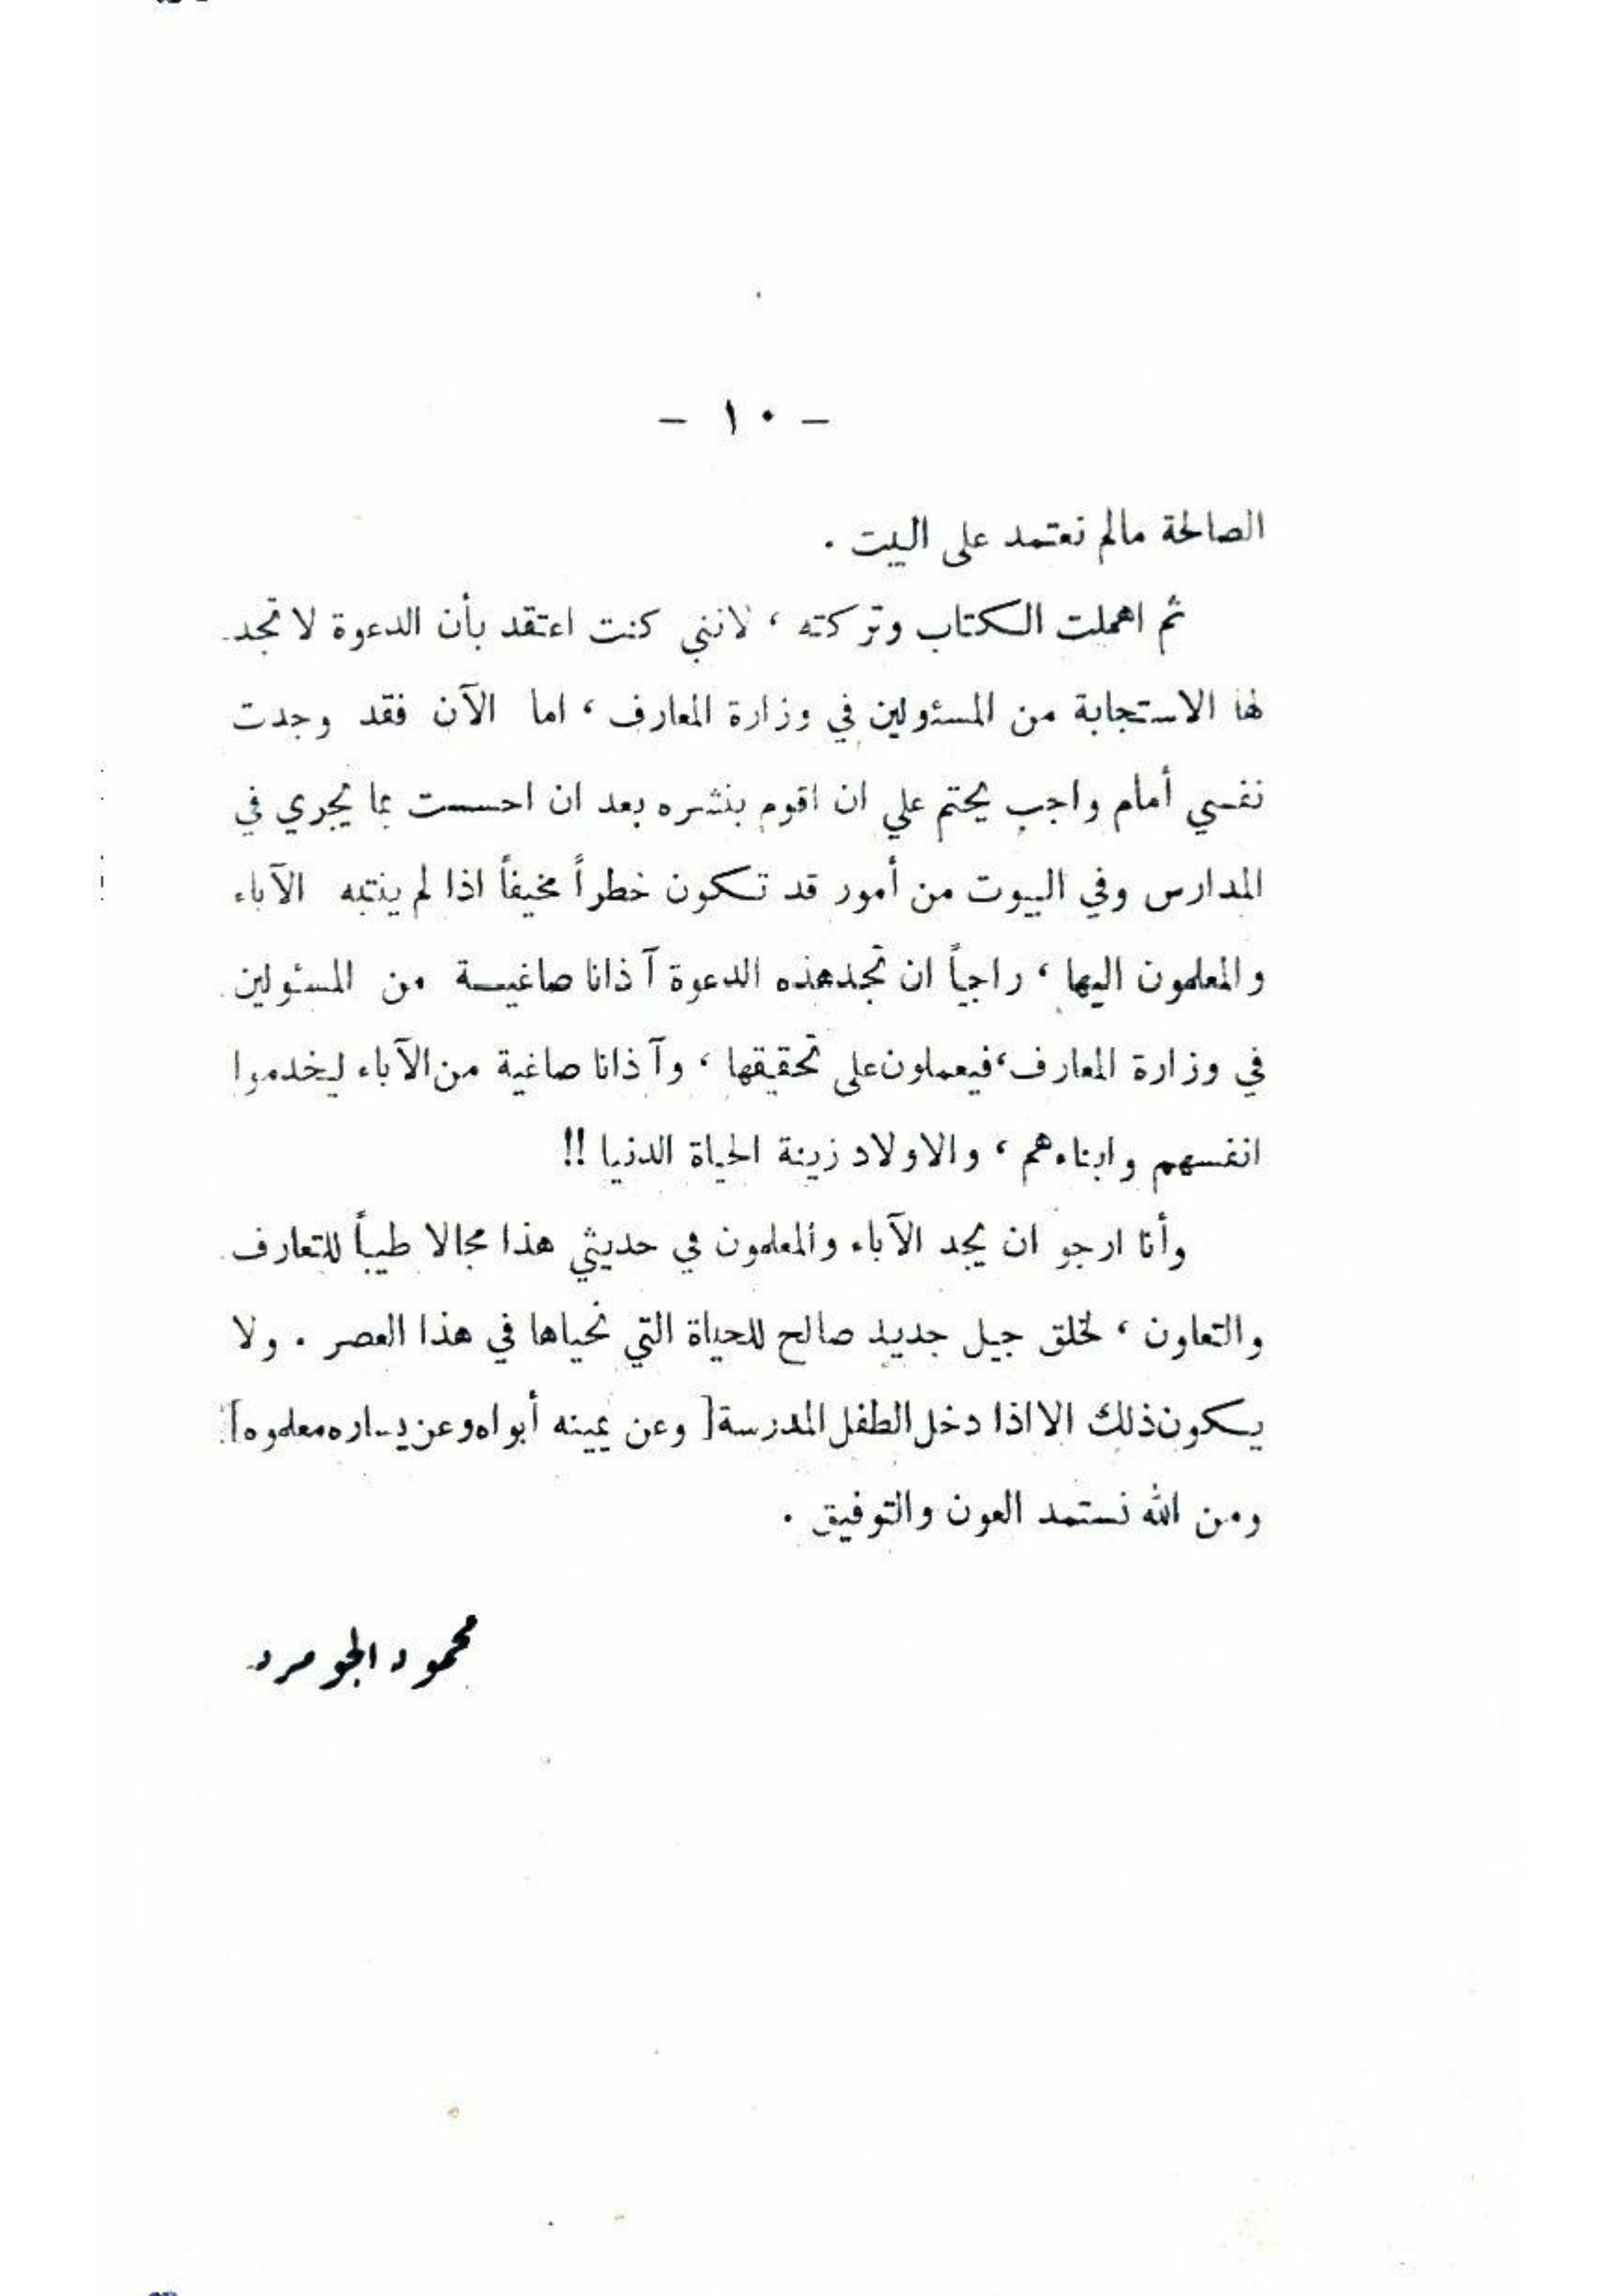 - ١٠ -
الصالحة مالم نعتمد على البيت .
ثم اهملت الكتاب وتركته ، لانني كنت اعتقد بأن الدعوة لا تجد
لها الاستجابة من المسئولين في وزارة المعارف ، اما الآن فقد وجدت
نفسي أمام واجب يحتم علي ان اقوم بنشره بعد ان احسست بما يجري في
المدارس وفي البيوت من أمور قد تكون خطراً مخيفاً اذا لم ينتبه الآباء
والمعلمون اليها ، راجياً ان تجد هذه الدعوة آذانا صاغية من المسئولين
في وزارة المعارف ، فيعملون على تحقيقها ، وآذانا صاغية من الآباء ليخدموا
انفسهم وابناءهم ، والاولاد زينة الحياة الدنيا !!
وأنا ارجو ان يجد الآباء والمعلمون في حديثي هذا مجالا طيباً للتعارف
والتعاون ، لخلق جيل جديد صالح للحياة التي نحياها في هذا العصر . ولا
يكون ذلك الا اذا دخل الطفل المدرسة [ وعن يمينه أبواه وعن يساره معلموه ]
ومن الله نستمد العون والتوفيق .
محمود الجومرد